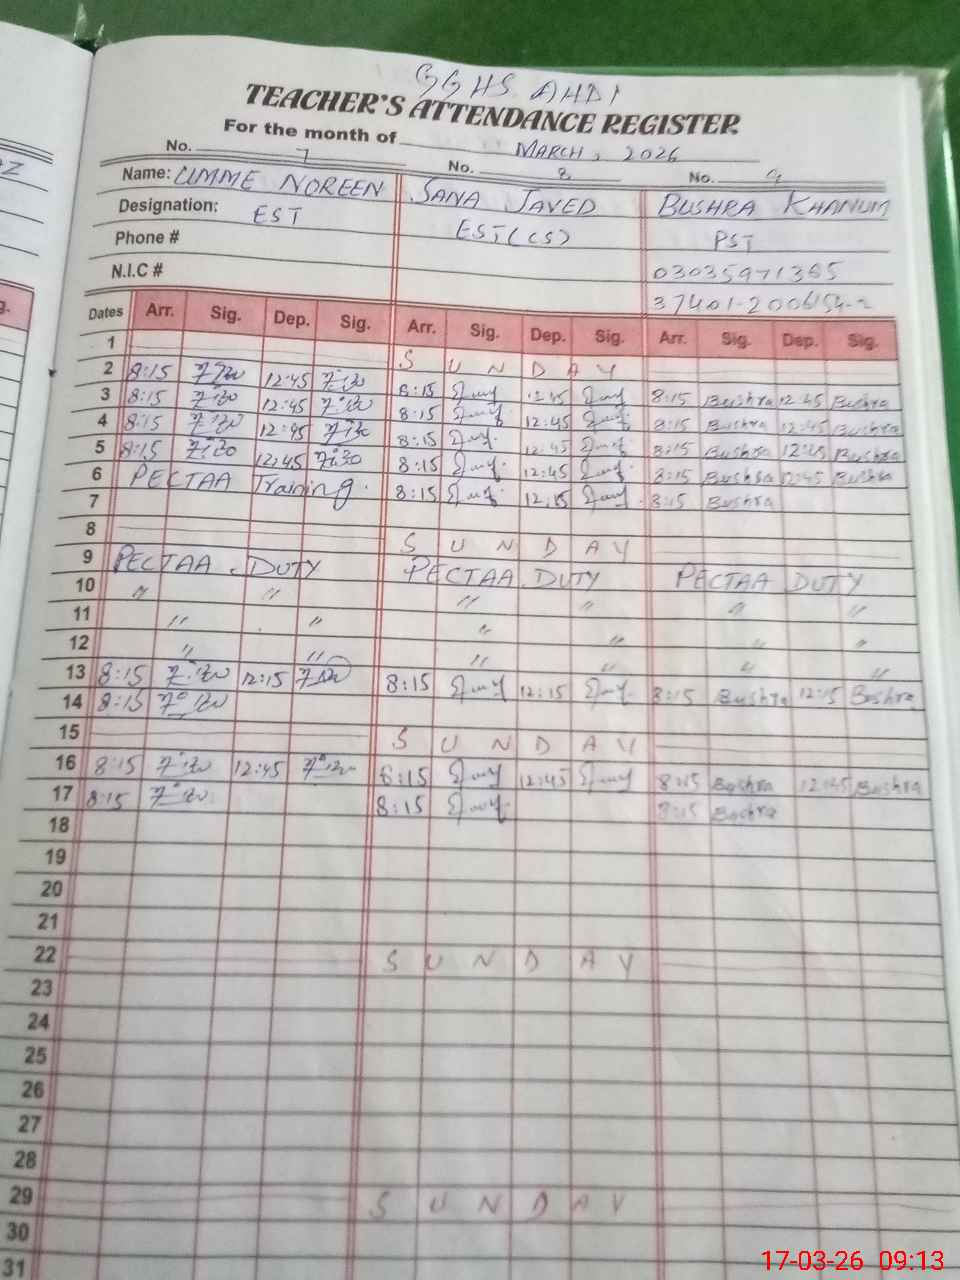 GGHS AHDI
TEACHER'S ATTENDANCE REGISTER
For the month of MARCH, 2026
No. 7 No. 8 No. 9
Name: UMME NOREEN SANA JAVED BUSHRA KHANUM
Designation: EST EST(CS) PST
Phone # 03035971365
N.I.C #
Dates Arr. Sig. Dep. Sig. Arr. Sig. Dep. Sig. Arr. Sig. Dep. Sig.
1 SUNDAY
2 8:15 12:45 8:15 12:45 8:15 Bushra 12:45 Bushra
3 8:15 12:45 8:15 12:45 8:15 Bushra 12:45 Bushra
4 8:15 12:45 8:15 12:45 8:15 Bushra 12:45 Bushra
5 8:15 12:45 8:15 12:45 8:15 Bushra 12:45 Bushra
6 PECTAA Training. 8:15 12:15 8:15 Bushra
7
8 SUNDAY
9 PECTAA DUTY PECTAA DUTY PECTAA DUTY
10 " " " " " "
11 " " " " " "
12 " " " " " "
13 8:15 12:15 8:15 12:15 8:15 Bushra 12:15 Bushra
14 8:15
15 SUNDAY
16 8:15 12:45 8:15 12:45 8:15 Bushra 12:45 Bushra
17 8:15 8:15 8:15 Bushra
18
19
20
21
22 SUNDAY
23
24
25
26
27
28
29 SUNDAY
30
31
17-03-26 09:13